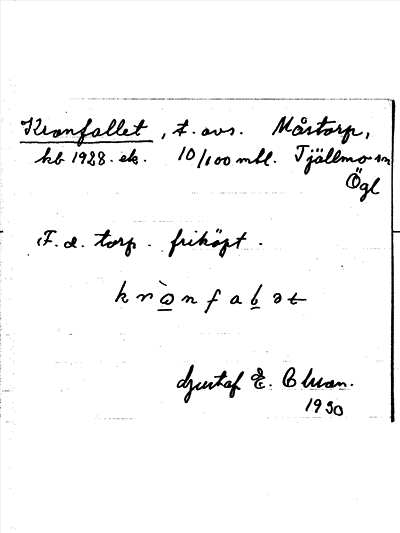 Kronfallet, t. avs. Mårstorp,
hb 1928. ek. 10/100 mtl. Tjällmo sn
Ögl
F. d. torp. friköpt.
Gustaf E. Olsson.
1930